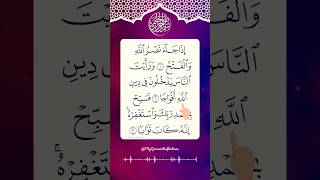 إِذَا جَآءَ نَصْرُ ٱللَّهِ
وَٱلْفَتْحُ ١ وَرَأَيْتَ
ٱلنَّاسَ يَدْخُلُونَ فِى دِينِ
ٱللَّهِ أَفْوَاجًا ٢ فَسَبِّحْ
بِحَمْدِ رَبِّكَ وَٱسْتَغْفِرْهُ ۚ
إِنَّهُۥ كَانَ تَوَّابًۢا ٣
ٱللَّهِ
وَٱسْتَغْفِرْهُ ۚ